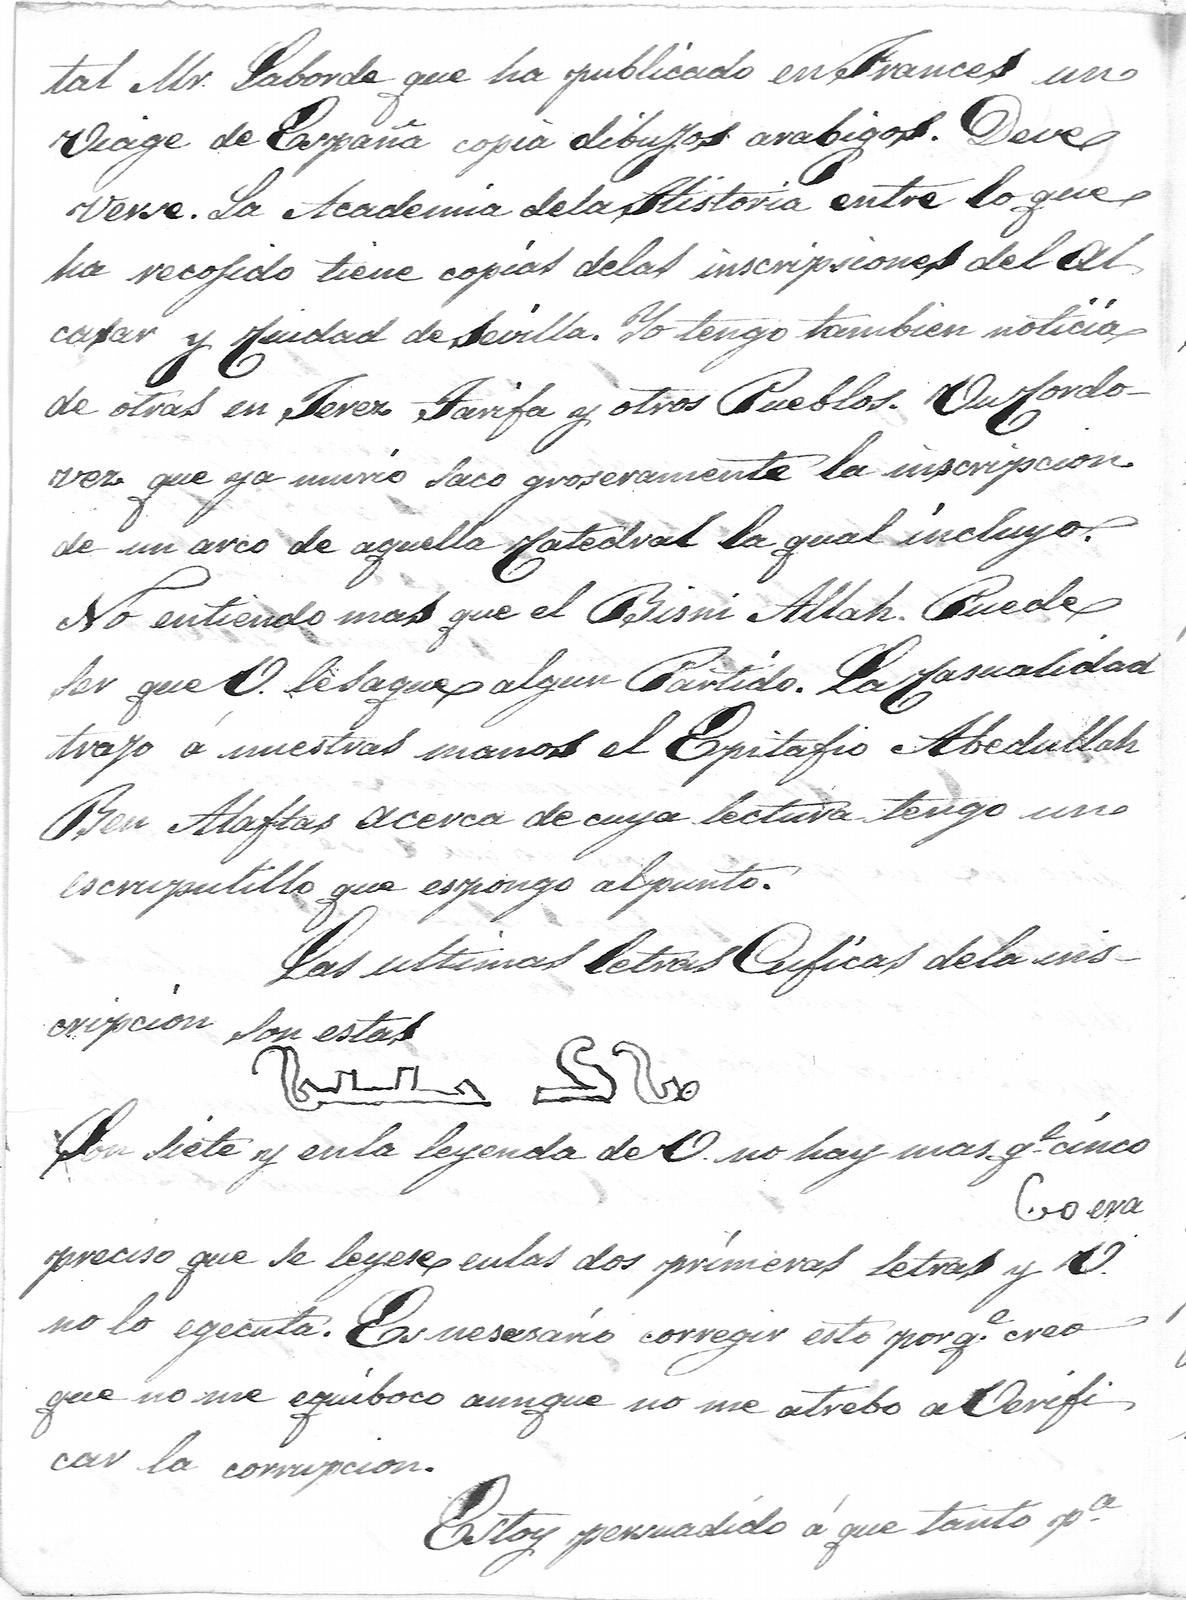 tal Mr. Laborde que ha publicado en Frances un
Viage de España copia dibujos arabigos. Deve
verse. La Academia dela Historia entre lo que
ha recojido tiene copias delas inscripsiones del Al
casar y Ciudad de Sevilla. Yo tengo tambien noticia
de otras en Jerez Tarifa y otros Pueblos. Un Cordo-
vez que ya murio saco groseramente la inscripcion
de un arco de aquella Catedral la qual incluyo.
No entiendo mas que el Bismi Allah. Puede
ser que V. le saque algun Partido. La Casualidad
trajo á nuestras manos el Epitafio Abedullah
Ben Alaftas acerca de cuya lectura tengo un
escrupulillo que espongo al punto.
Las ultimas letras Cuficas dela ins-
cripción son estas
Son siete y enla leyenda de V. no hay mas q.e cinco
era
preciso que se leyese enlas dos primeras letras y V.
no lo egecuta. Es nesesario corregir esto porq.e creo
que no me equiboco aunque no me atrebo a Verifi
car la corrupcion.
Estoy persuadido á que tanto p.a